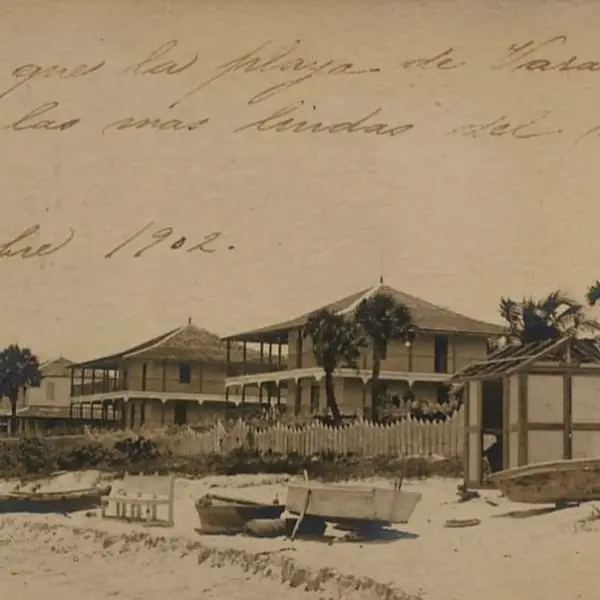 que la playa de Vara
las mas lindas del
bre 1902.